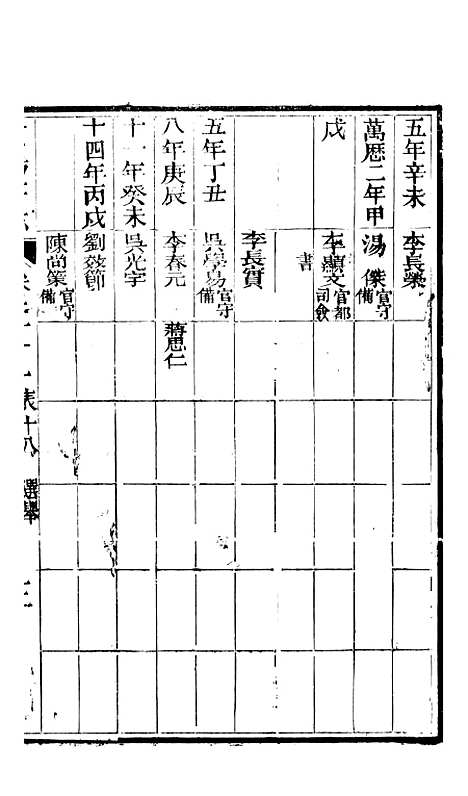 五年辛未　李長榮
萬曆二年甲　湯傑官守備
戌　李顯文官都司僉
書
李長實
五年丁丑　吳學易官守備
八年庚辰　李春元　蔣思仁
十一年癸未　吳光宇
十四年丙戌　劉效節
陳尚策官守備
表十八　選舉